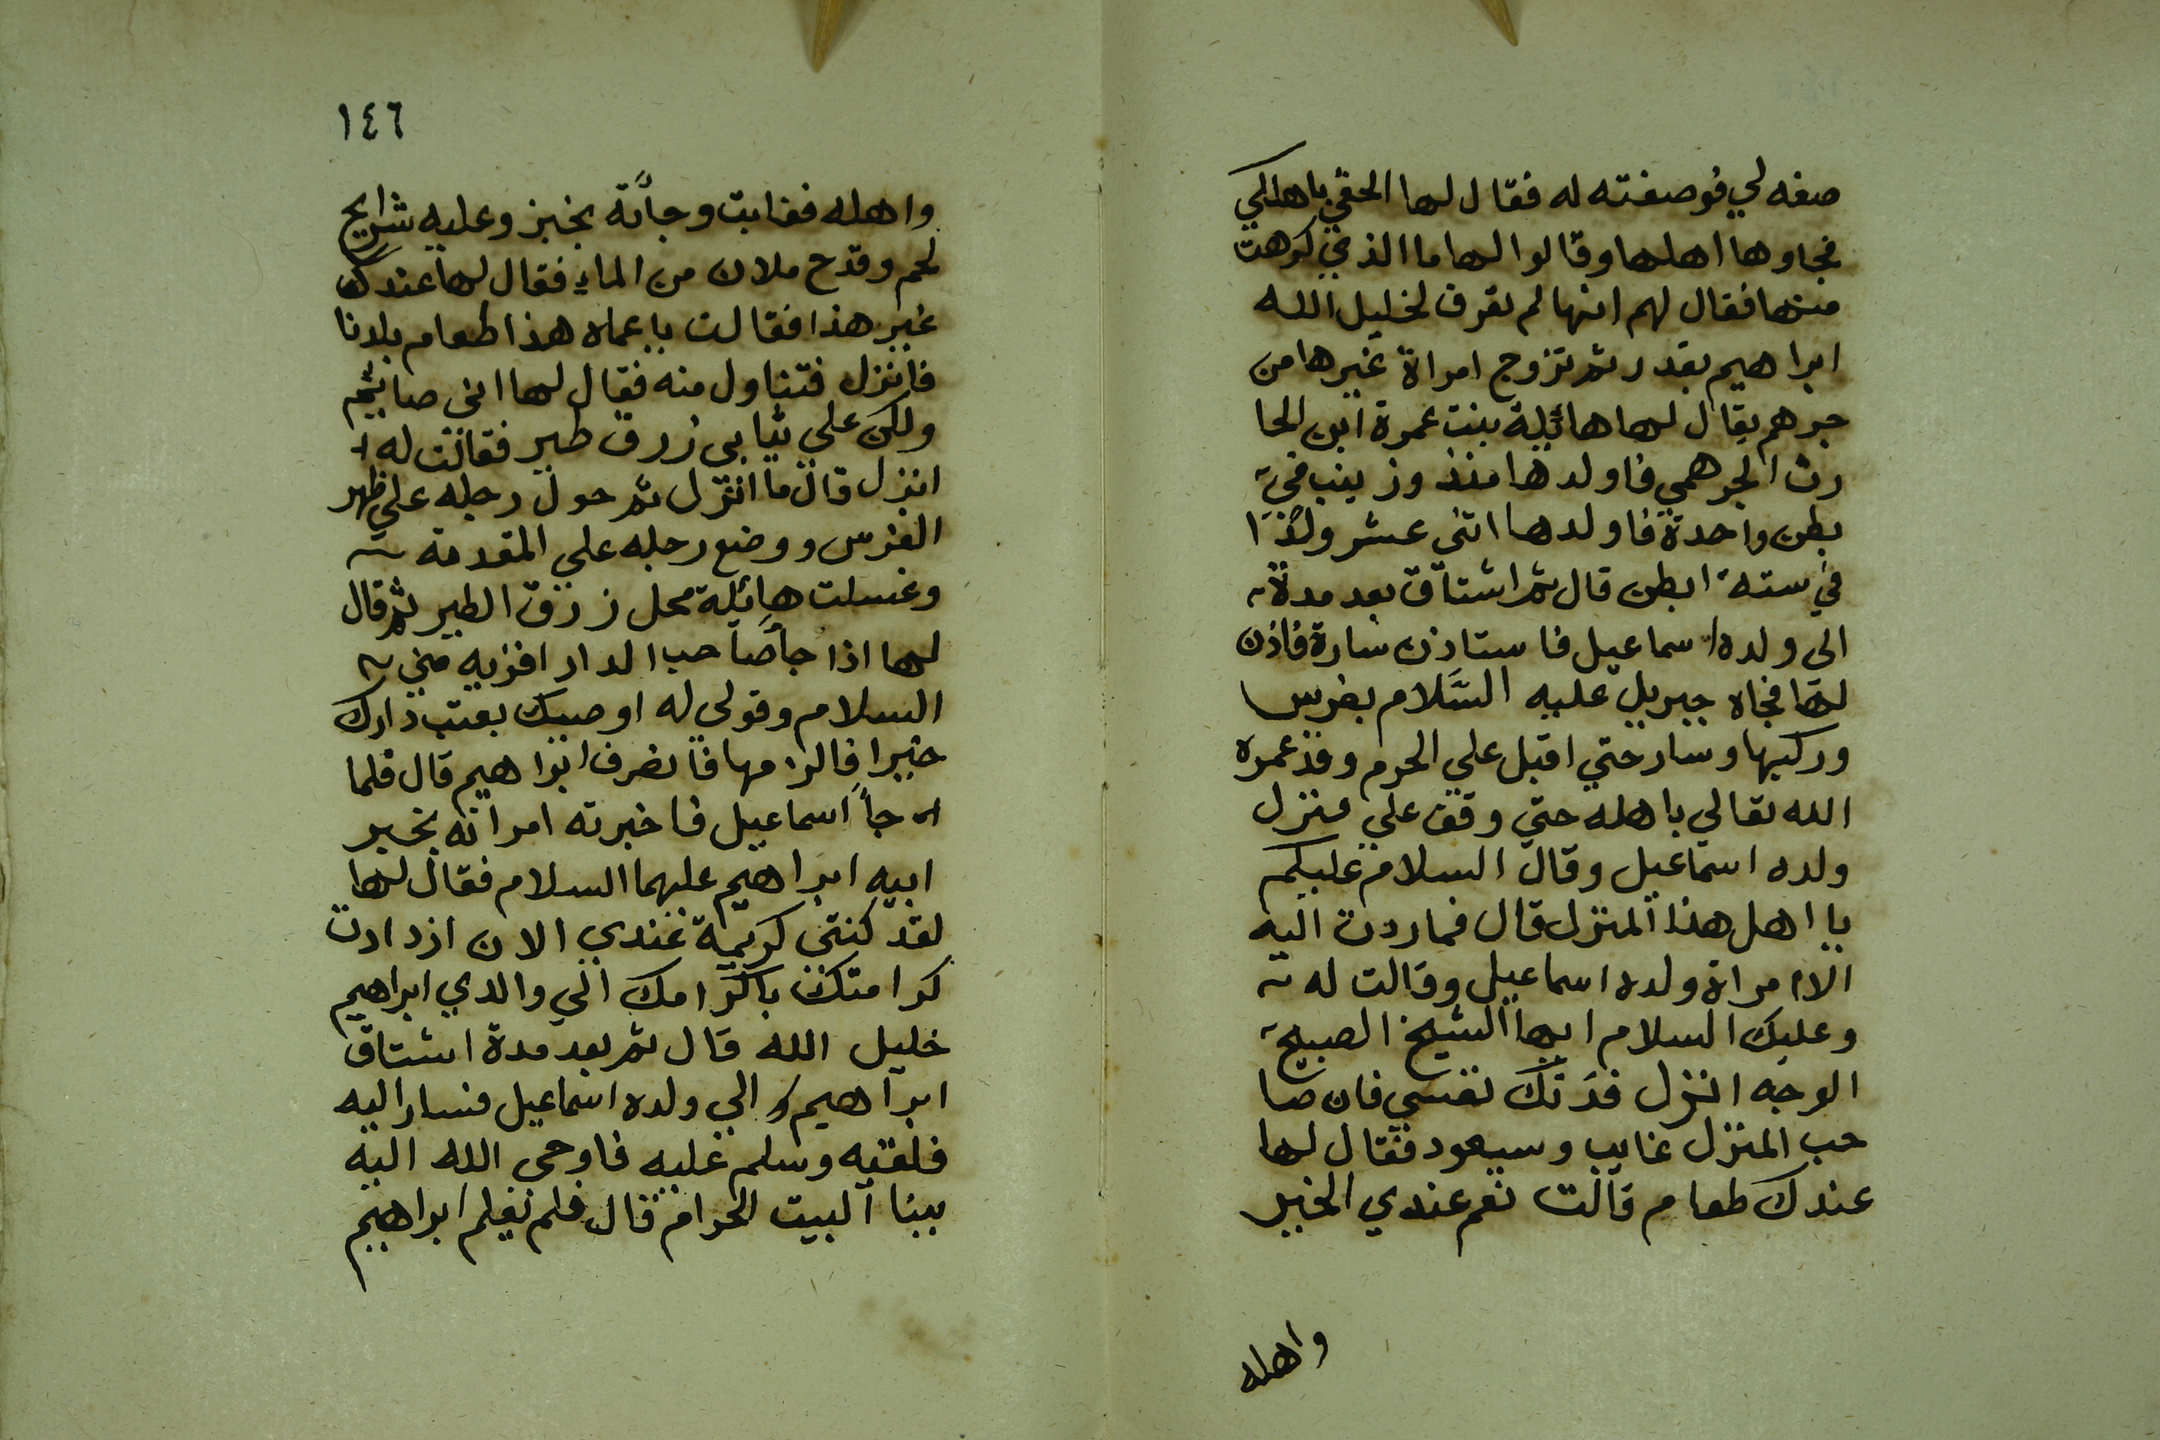 صفه لي فوصفته له فقال لها الحقي باهلكي
فجاوها اهلها وقالوا لها ما الذي كرهت
منها فقال لهم انها لم تعرف لخليل الله
ابراهيم بقدر ثم تزوج امراة غيرها من
جرهم يقال لها هائلة بنت عمرة ابن الحا
رث الجرهمي فاولدها وزينب في
بطن واحدة فاولدها اثني عشر ولدا
في ستة ابطن قال ثم اشتاق بعد مدة
الى ولده اسماعيل فاستاذن سارة فاذن
لها فجاه جبريل عليه السلام بفرس
وركبها وسار حتي اقبل علي الحرم وقد عمره
الله تعالي باهله حتي وقف علي منزل
ولده اسماعيل وقال السلام عليكم
يا اهل هذا المنزل قال فماردت اليه
الا امراة ولده اسماعيل وقالت له
وعليك السلام ايها الشيخ الصبيح
الوجه انزل فدتك نفسي فان صا
حب المنزل غايب وسيعود فقال لها
عندك طعام قالت نعم عندي الخير
واهله
١٤٦
واهله فغابت وجأة بخبز وعليه شرايح
لحم وقدح ملان من الماء فقال لها عندك
غير هذا فقالت يا عماه هذا طعام بلدنا
فانزل فتناول منه فقال لها اني صائيم
ولكن علي ثيابي زرق طير فقالت له
انزل قال ما انزل ثم حول رجله علي ظهر
الفرس ووضع رجله علي المقدمة
وغسلت هائلة محل زرق الطير ثم قال
لها اذا جأ صاحب الدار اقريه مني
السلام وقولي له اوصيك بعتب دارك
خيرا فالزمها فانصرف ابراهيم قال فلما
جأ اسماعيل فاخبرته امراته بخبر
ابيه ابراهيم عليهما السلام فقال لها
لقد كنتي كريمة عندي الان ازدادت
كرامتك باكرامك الي والدي ابراهيم
خليل الله قال ثم بعد مدة اشتاق
ابراهيم الي ولده اسماعيل فسار اليه
فلقيه وسلم عليه فاوحى الله اليه
ببنا البيت الحرام قال فلم يعلم ابراهيم